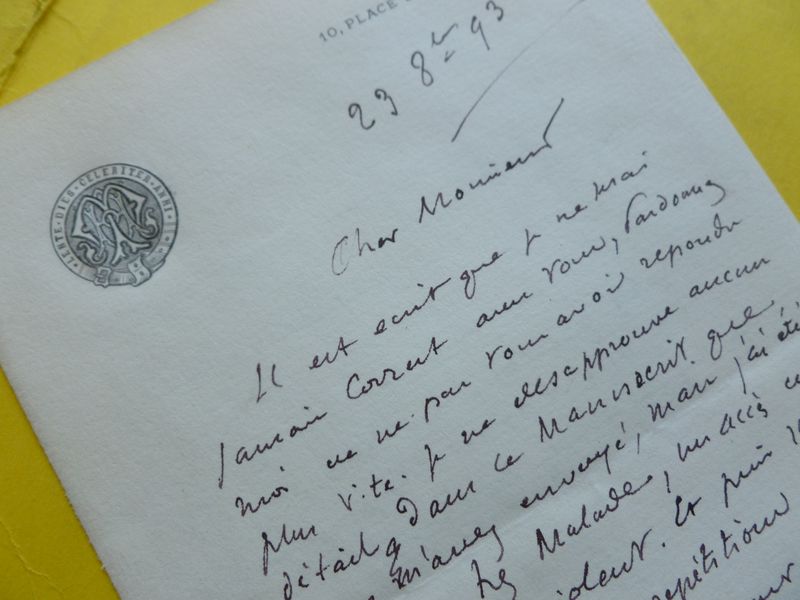 10, PLACE
23 8bre 93
LENTE · DIES · CELERITER · ANNI
Cher Monsieur
Il est écrit que je ne serai
jamais correct avec vous, pardonnez
moi de ne pas vous avoir répondu
plus vite. Je ne desapprouve aucun
détail dans ce Manuscrit que
m'avez envoyé, mais j'ai été
très Malade, un accès
violent. Et puis
repétitions